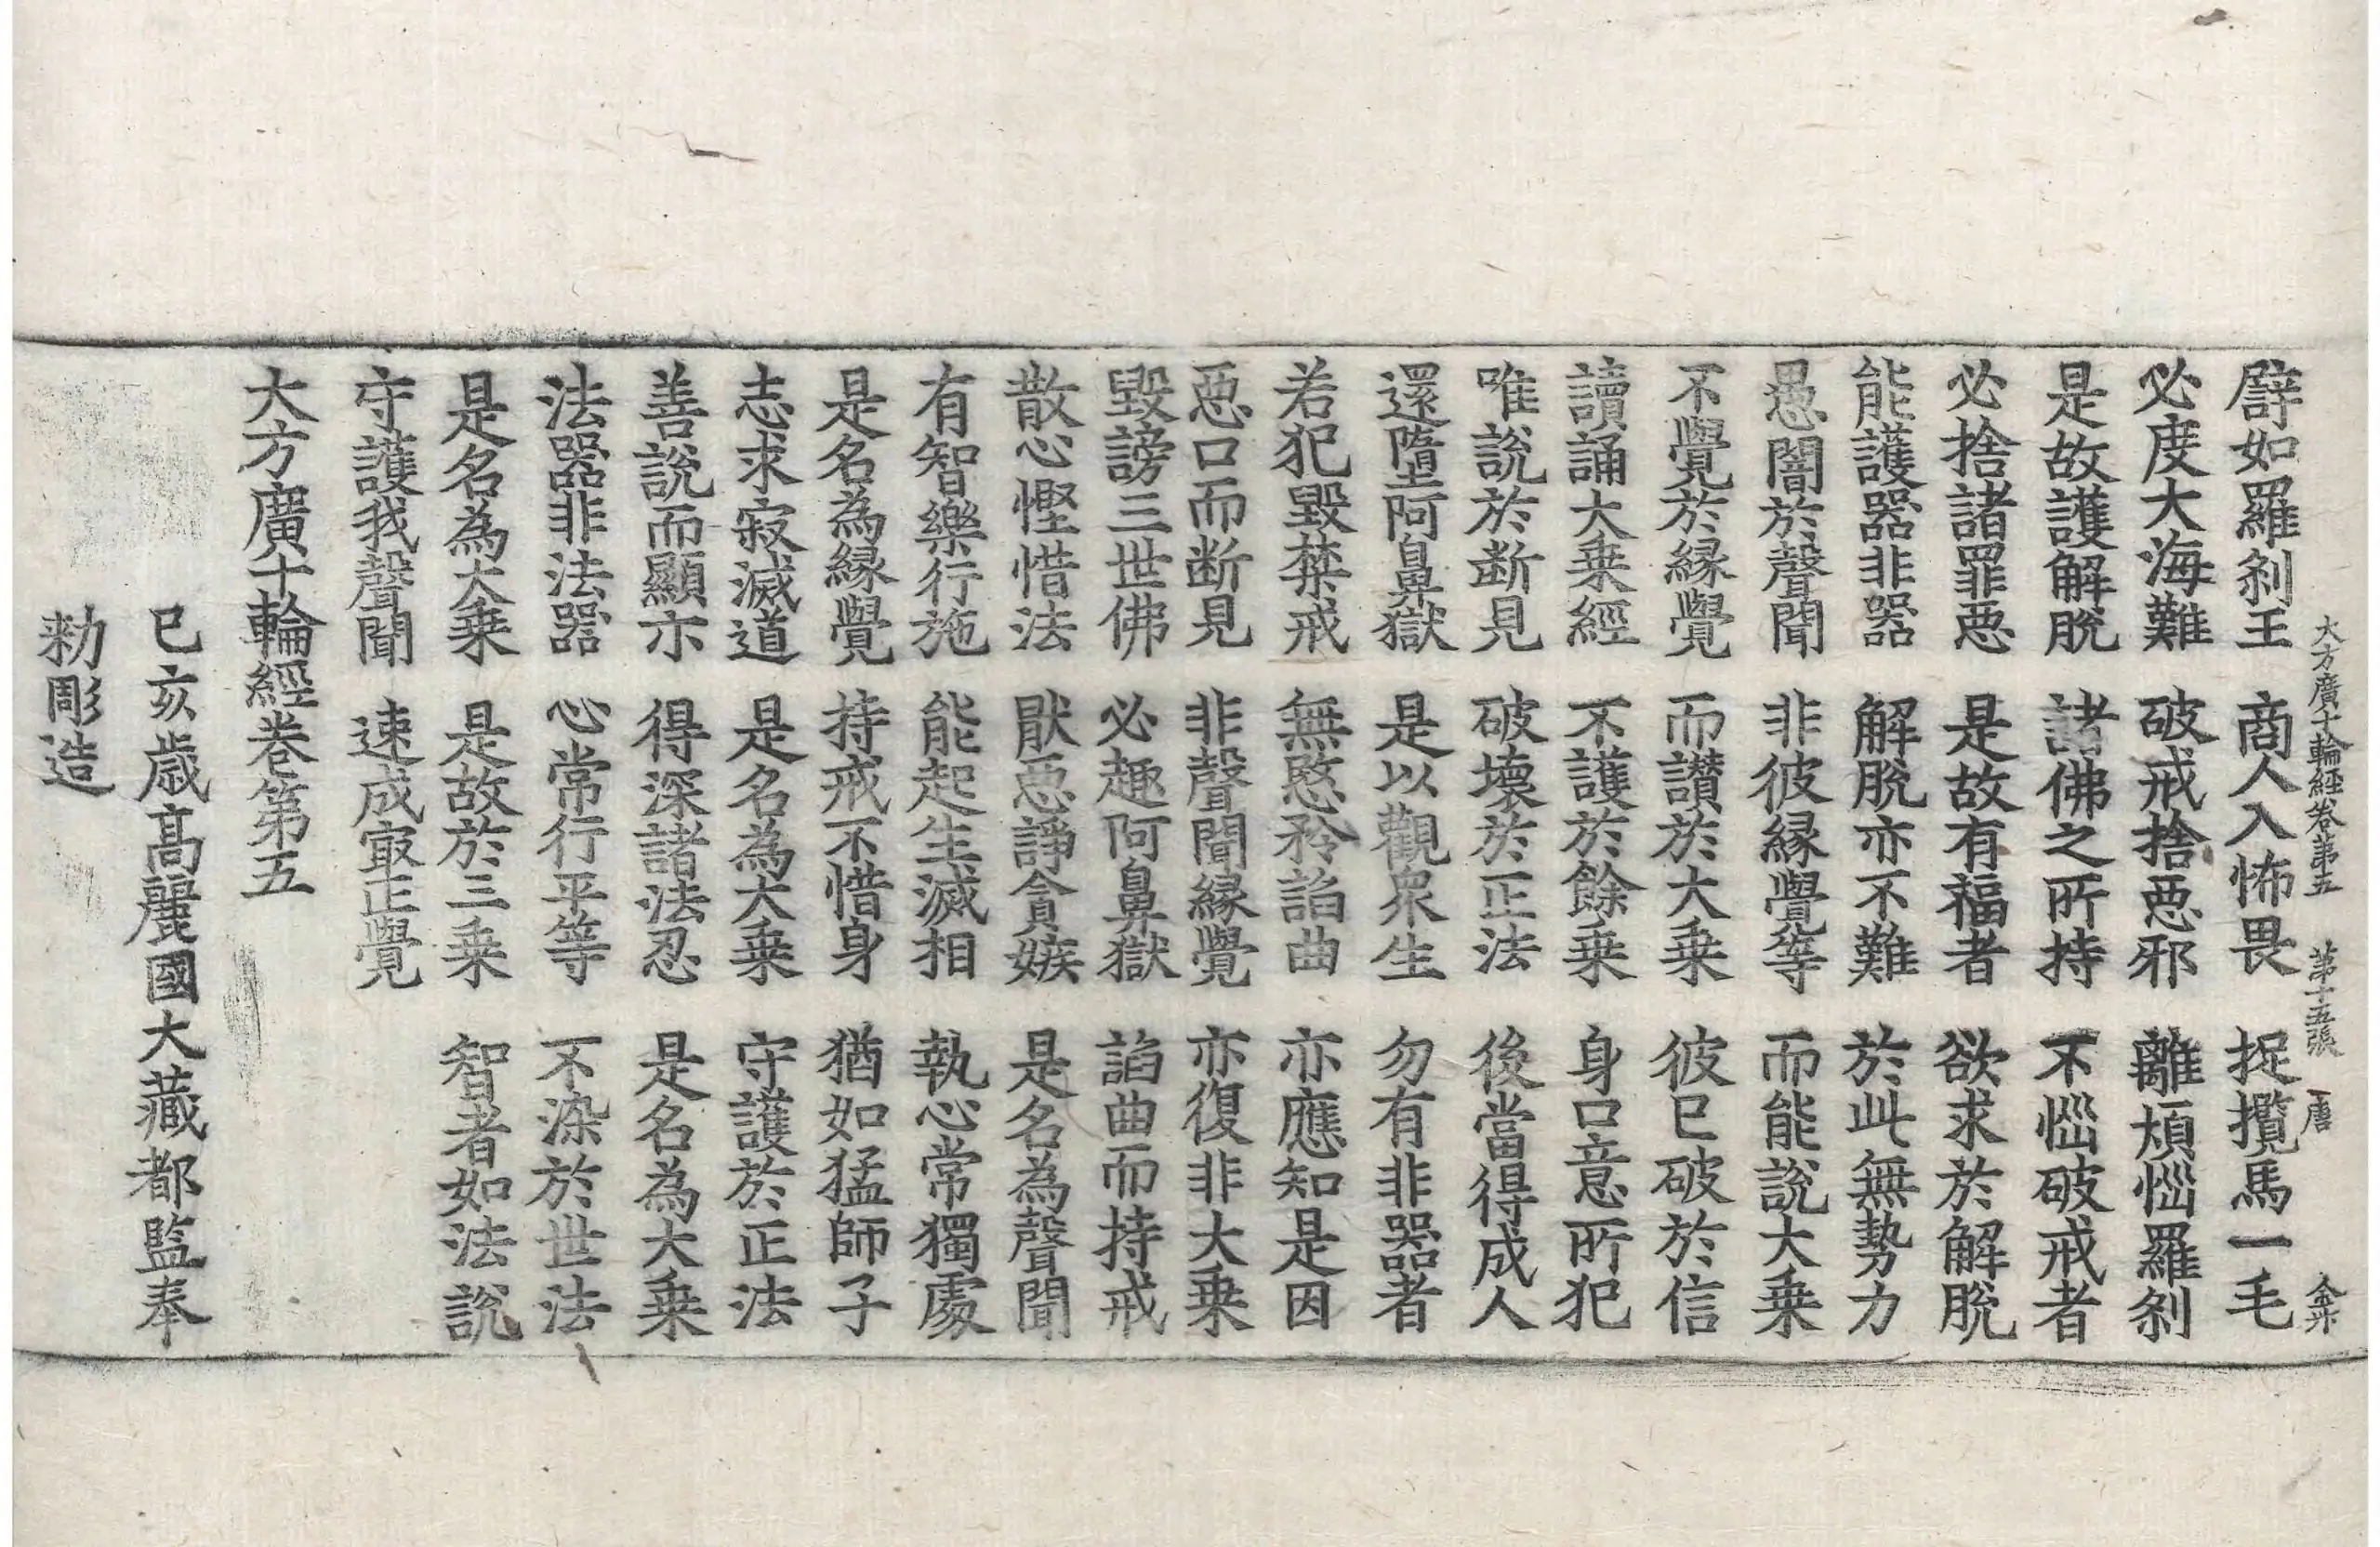 大方廣十輪經卷第五 第十五張 唐
譬如羅剎王 商人入怖畏 捉攬馬一毛
必度大海難 破戒捨惡邪 離煩惱羅剎
是故護解脫 諸佛之所持 不惱破戒者
必捨諸罪惡 是故有福者 欲求於解脫
能護器非器 解脫亦不難 於此無勢力
愚闇於聲聞 非彼緣覺等 而能說大乗
不覺於緣覺 而讃於大乗 彼已破於信
讀誦大乗經 不護於餘乗 身口意所犯
唯說於断見 破壞於正法 後當得成人
還墮阿鼻獄 是以觀衆生 勿有非器者
若犯毀禁戒 無慜矜諂曲 亦應知是因
惡口而断見 非聲聞緣覺 亦復非大乗
毀謗三世佛 必趣阿鼻獄 諂曲而持戒
散心慳惜法 猒惡諍貪嫉 是名為聲聞
有智樂行施 能起生滅相 執心常獨處
是名為緣覺 持戒不惜身 猶如猛師子
志求寂滅道 是名為大乗 守護於正法
善說而顯示 得深諸法忍 是名為大乗
法器非法器 心常行平等 不染於世法
是名為大乗 是故於三乗 智者如法說
守護我聲聞 速成㝡正覺
大方廣十輪經卷第五
己亥歲高麗國大藏都監奉
勑彫造